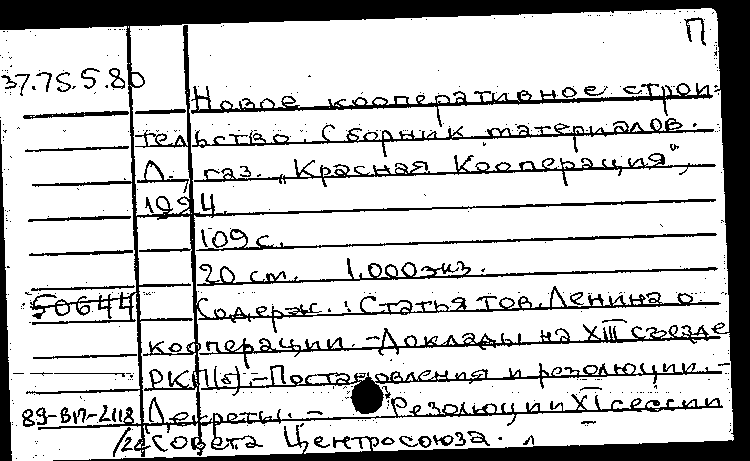 П
37.75.5.80
Новое кооперативное строи-
тельство. Сборник материалов.
Л. газ. „Красная Кооперация",
1924.
109 с.
20 см. 1.000 экз.
50644 Содерж.: Статья тов. Ленина о
кооперации. - Доклады на XIII съезде
РКП(б). - Постановления и резолюции. -
89-ВП-2118 Декреты. - Резолюции XI сессии
/24 Совета Центросоюза.